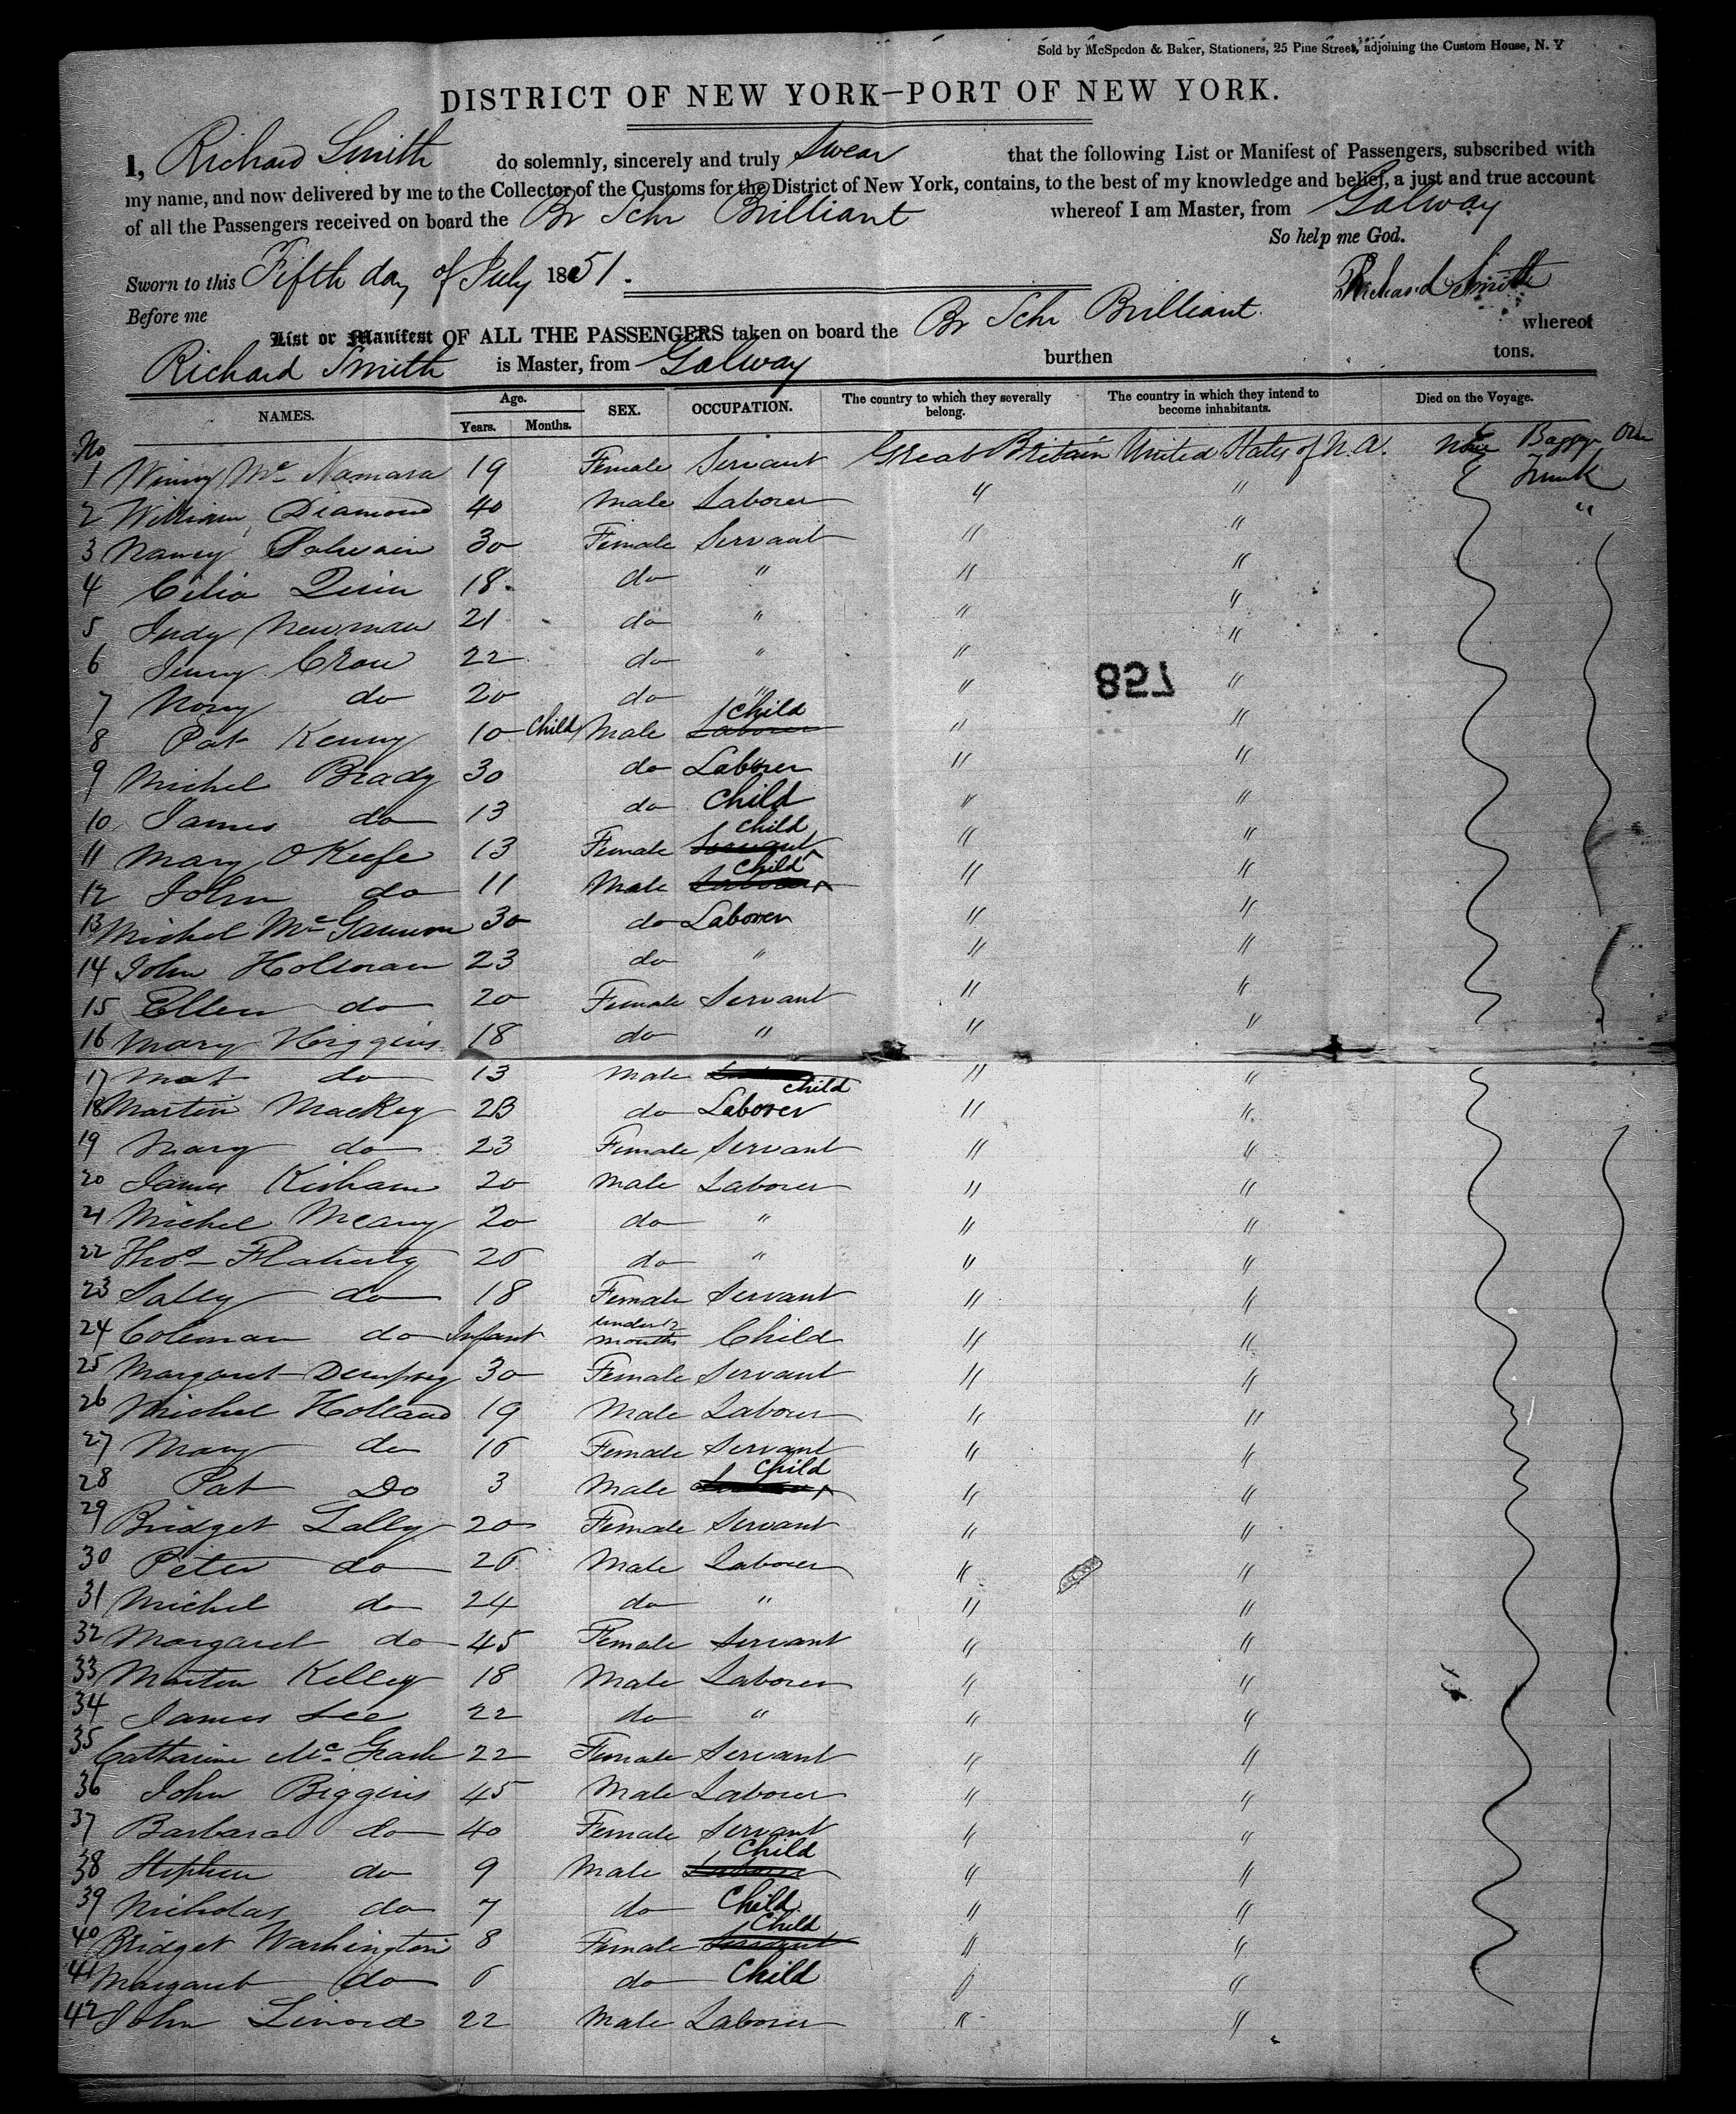 Sold by McSpedon & Baker, Stationers, 25 Pine Street, adjoining the Custom House, N. Y
DISTRICT OF NEW YORK—PORT OF NEW YORK.
I, Richard Smith do solemnly, sincerely and truly Swear that the following List or Manifest of Passengers, subscribed with
my name, and now delivered by me to the Collector of the Customs for the District of New York, contains, to the best of my knowledge and belief, a just and true account
of all the Passengers received on board the Br Schr Brilliant whereof I am Master, from Galway
So help me God.
Sworn to this Fifth day of July 1851. Richard Smith
Before me
List or Manifest OF ALL THE PASSENGERS taken on board the Br Schr Brilliant whereof
Richard Smith is Master, from Galway burthen tons.
NAMES. Age. Years. Months. SEX. OCCUPATION. The country to which they severally belong. The country in which they intend to become inhabitants. Died on the Voyage.
No
1 Winny Mc Namara 19 Female Servant Great Britain United States of N.A. None Baggage One Trunk
2 William Diamond 40 Male Laborer " " "
3 Nancy 30 Female Servant " "
4 Cilia Quin 18 do " " "
5 Judy Newman 21 do " " "
6 Jenny Crow 22 do " " "
7 Nony do 20 do " " "
857
8 Pat Kenny 10 Child Male Laborer Child " "
9 Michel Brady 30 do Laborer " "
10 James do 13 do Child " "
11 Mary OKeefe 13 Female Servant Child " "
12 John do 11 Male Laborer Child " "
13 Michel Mc 30 do Laborer " "
14 John Holloran 23 do " " "
15 Ellen do 20 Female Servant " "
16 Mary Higgins 18 do " " "
17 Mat do 13 Male Child " "
18 Martin Mackey 23 do Laborer " "
19 Mary do 23 Female Servant " "
20 James Kirham 20 Male Laborer " "
21 Michel Meany 20 do " " "
22 Thos Flaherty 26 do " " "
23 Sally do 18 Female Servant " "
24 Coleman do Infant under 12 months Child " "
25 Margaret Dempsey 30 Female Servant " "
26 Michel Holland 19 Male Laborer " "
27 Mary do 16 Female Servant " "
28 Pat Do 3 Male Child " "
29 Bridget Lally 20 Female Servant " "
30 Peter do 26 Male Laborer " "
31 Michel do 24 do " " "
32 Margaret do 45 Female Servant " "
33 Martin Kelley 18 Male Laborer " "
34 James Lee 22 do " " "
35 Catharine Mc Grath 22 Female Servant " "
36 John Biggins 45 Male Laborer " "
37 Barbara do 40 Female Servant " "
38 Stephen do 9 Male Laborer Child " "
39 Nicholas do 7 do Child " "
40 Bridget Washington 8 Female Servant Child " "
41 Margaret do 6 do Child " "
42 John 22 Male Laborer " "